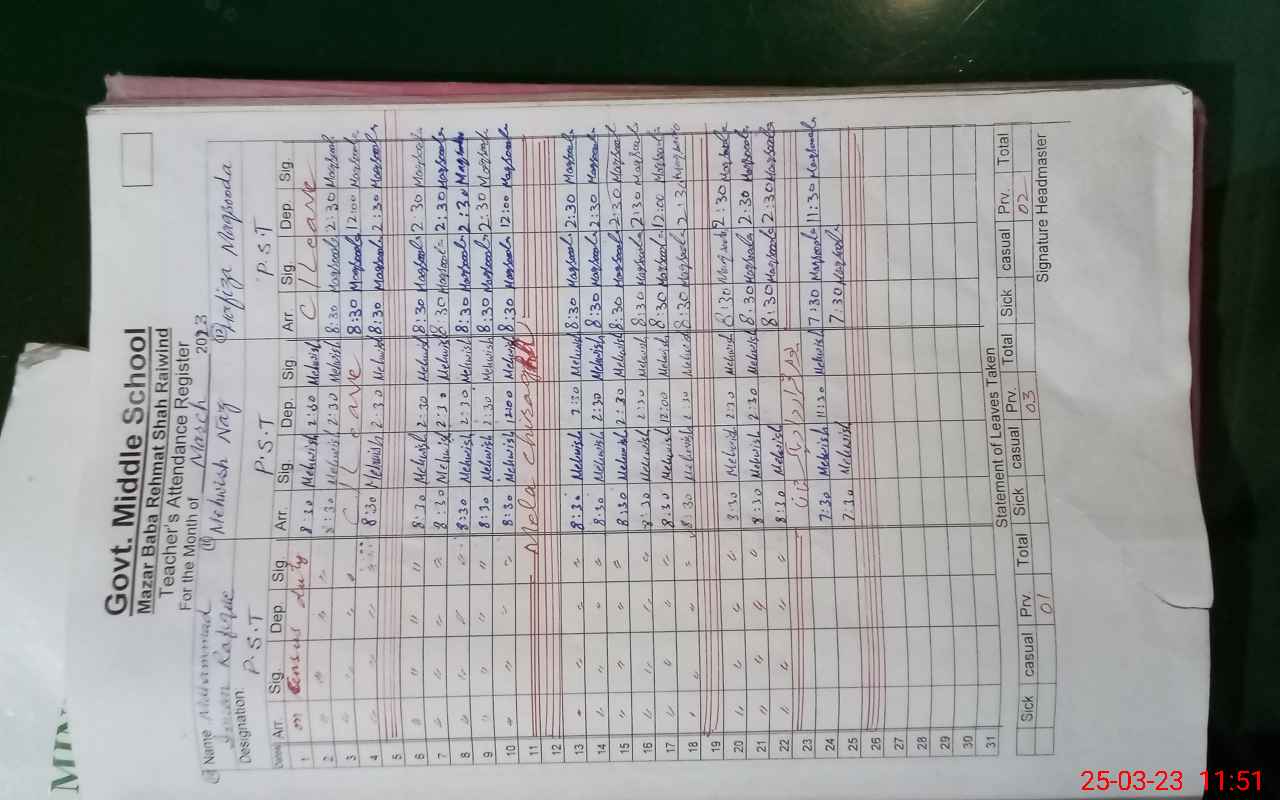 Govt. Middle School
Mazar Baba Rehmat Shah Raiwind
Teacher's Attendance Register
For the Month of March 2023
Name Muhammad Rafique Mehwish Naz Hafiza Maqsooda
Designation: P.S.T P.S.T P.S.T
Arr. Sig. Dep. Sig. Arr. Sig. Dep. Sig Arr. Sig. Dep. Sig.
1 Census duty 8:30 Mehwish 2:30 Mehwish C/Leave
2 " " " " 8:30 Mehwish 2:30 Mehwish 8:30 Maqsooda 2:30 Maqsooda
3 " " " " C/Leave 8:30 Maqsooda 12:00 Maqsooda
4 " " " " 8:30 Mehwish 2:30 Mehwish 8:30 Maqsooda 2:30 Maqsooda
5
6 " " " " 8:30 Mehwish 2:30 Mehwish 8:30 Maqsooda 2:30 Maqsooda
7 " " " " 8:30 Mehwish 2:30 Mehwish 8:30 Maqsooda 2:30 Maqsooda
8 " " " " 8:30 Mehwish 2:30 Mehwish 8:30 Maqsooda 2:30 Maqsooda
9 " " " " 8:30 Mehwish 2:30 Mehwish 8:30 Maqsooda 2:30 Maqsooda
10 " " " " 8:30 Mehwish 12:00 Mehwish 8:30 Maqsooda 12:00 Maqsooda
11 Mela
12
13 " " " " 8:30 Mehwish 2:30 Mehwish 8:30 Maqsooda 2:30 Maqsooda
14 " " " " 8:30 Mehwish 2:30 Mehwish 8:30 Maqsooda 2:30 Maqsooda
15 " " " " 8:30 Mehwish 2:30 Mehwish 8:30 Maqsooda 2:30 Maqsooda
16 " " " " 8:30 Mehwish 2:30 Mehwish 8:30 Maqsooda 2:30 Maqsooda
17 " " " " 8:30 Mehwish 12:00 Mehwish 8:30 Maqsooda 12:00 Maqsooda
18 " " " " 8:30 Mehwish 2:30 Mehwish 8:30 Maqsooda 2:30 Maqsooda
19
20 " " " " 8:30 Mehwish 2:30 Mehwish 8:30 Maqsooda 2:30 Maqsooda
21 " " " " 8:30 Mehwish 2:30 Mehwish 8:30 Maqsooda 2:30 Maqsooda
22 " " " " 8:30 Mehwish 8:30 Maqsooda 2:30 Maqsooda
23
24 7:30 Mehwish 11:30 Mehwish 7:30 Maqsooda 11:30 Maqsooda
25 7:30 Mehwish 7:30 Maqsooda
26
27
28
29
30
31
Statement of Leaves Taken
Sick casual Prv. Total Sick casual Prv. Total Sick casual Prv. Total
01 03 02
Signature Headmaster
25-03-23 11:51